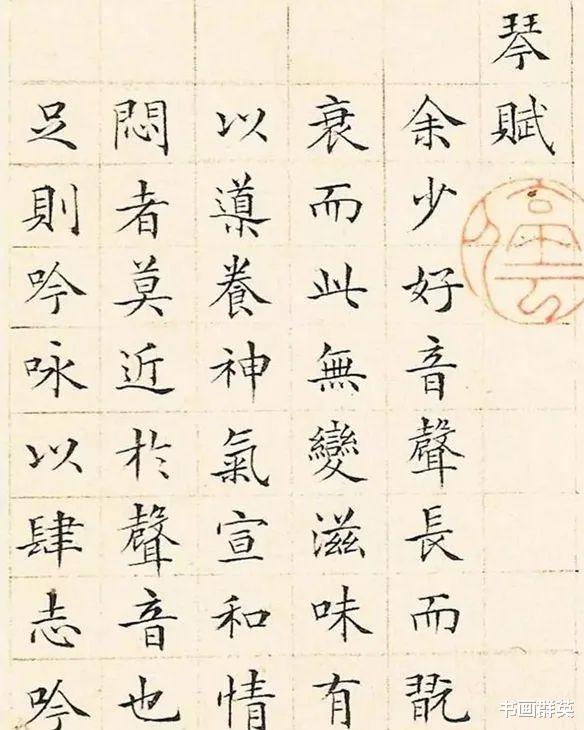 琴賦
余少好音聲長而翫
衰而此無變滋味有
以導養神氣宣和情
悶者莫近於聲音也
足則吟咏以肆志吟
书画群英